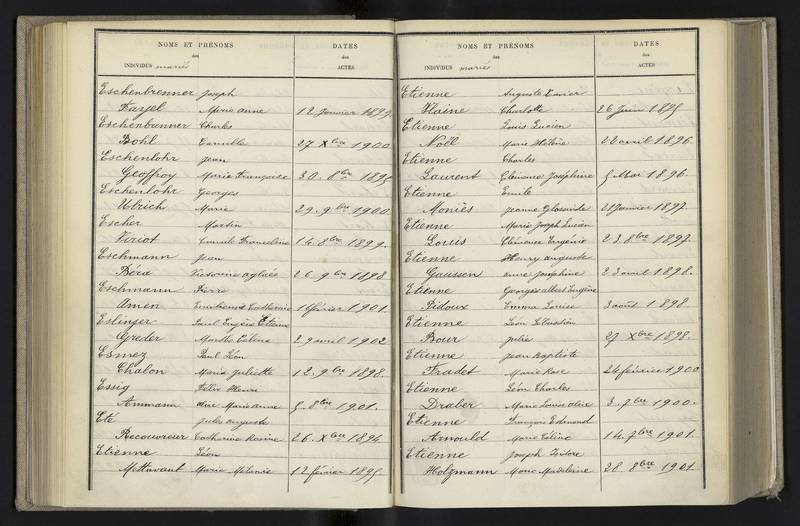 NOMS ET PRÉNOMS
des
INDIVIDUS mariés
DATES
des
ACTES
Eschenbrenner Joseph
Marie Anne 12 Janvier 1899
Eschenbrenner Charles
Bohl Camille 27 Xbre 1900
Eschenlohr Jean
Geoffroy Marie Françoise 30. 8bre 1895
Eschenlohr Georges
Ulrich Marie 29. 9bre 1900.
Escher Martin
Viriot 14. 8bre 1899.
Eschmann Jean
Béra Victorine aglaée 26. 9bre 1898
Eschmann Pierre
Amen 1 février 1901.
Eslinger Paul Eugène Etienne
Greder Marthe 2 avril 1902
Esmez Paul Léon
Chalon Marie Juliette 12. 9bre 1898.
Essig Félix Henri
Ammann Marie Anne 5. 8bre 1901.
Eté Jules Auguste
Recouvreur Catherine Rosine 26. Xbre 1894.
Etienne Léon
Mettavant Marie Mélanie 12 février 1895
NOMS ET PRÉNOMS
des
INDIVIDUS mariés
DATES
des
ACTES
Etienne Auguste Xavier
Charlotte 26 Juin 1895
Etienne Louis Lucien
Noël Marie Hélène 22 avril 1896.
Etienne Charles
Laurent Clémence Joséphine 5 Mai 1896.
Etienne Emile
Moniès Jeanne 21 Janvier 1897.
Etienne Marie Joseph Lucien
Louis Clémence Eugénie 23 8bre 1897.
Etienne Henry Auguste
Gausson Anne Joséphine 23 avril 1898.
Etienne Georges Albert Eugène
Pidoux Emma Louise 3 août 1898.
Etienne Léon
Bour Julie 27 Xbre 1898.
Etienne Jean Baptiste
Fradet Marie Rose 24 février 1900
Etienne Léon Charles
Draber Marie Louise 3. 7bre 1900.
Etienne François Edmond
Arnould Marie Céline 14. 7bre 1901.
Etienne Joseph Isidore
Holzmann Marie Madeleine 28. 8bre 1901